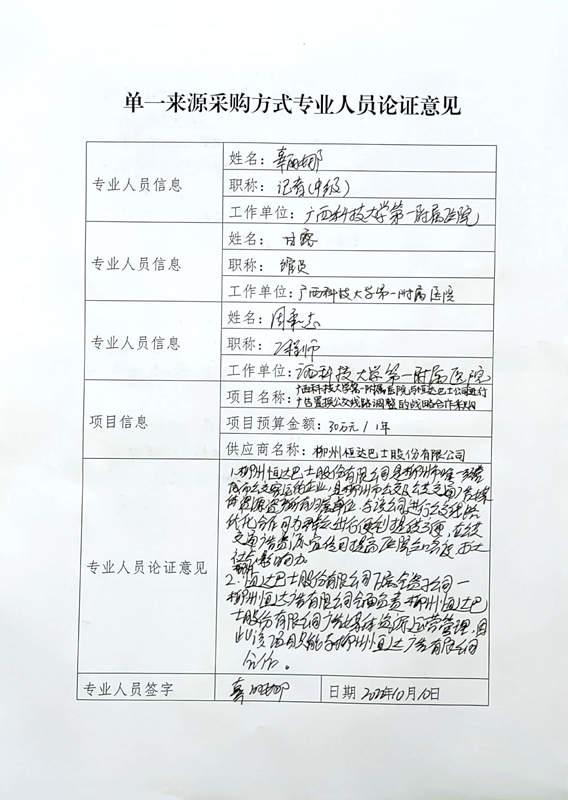 单一来源采购方式专业人员论证意见
专业人员信息
姓名：
职称：记者(中级)
工作单位：广西科技大学第一附属医院
专业人员信息
姓名：甘露
职称：编员
工作单位：广西科技大学第一附属医院
专业人员信息
姓名：周秉志
职称：工程师
工作单位：广西科技大学第一附属医院
项目信息
项目名称：广西科技大学第一附属医院与恒达巴士公司进行
广告置换公交线路调整的战略合作采购
项目预算金额：30万元/1年
供应商名称：柳州恒达巴士股份有限公司
专业人员论证意见
1.柳州恒达巴士股份有限公司是柳州市唯一
城市公交客运的企业，是柳州市公交及公交
体资源资产所有归属单位，与该公司进行公交线路
优化合作可为群众进行便利提供方便，在公交
广告资源宣传可提高医院知名度，扩大
社会影响力。
2.恒达巴士股份有限公司下属全资子公司—
柳州恒达广告有限公司全面负责柳州恒达巴
士股份有限公司广告媒体资源运营管理，因
此该项目只能与柳州恒达广告有限公司
合作。
专业人员签字
日期 2022年10月10日